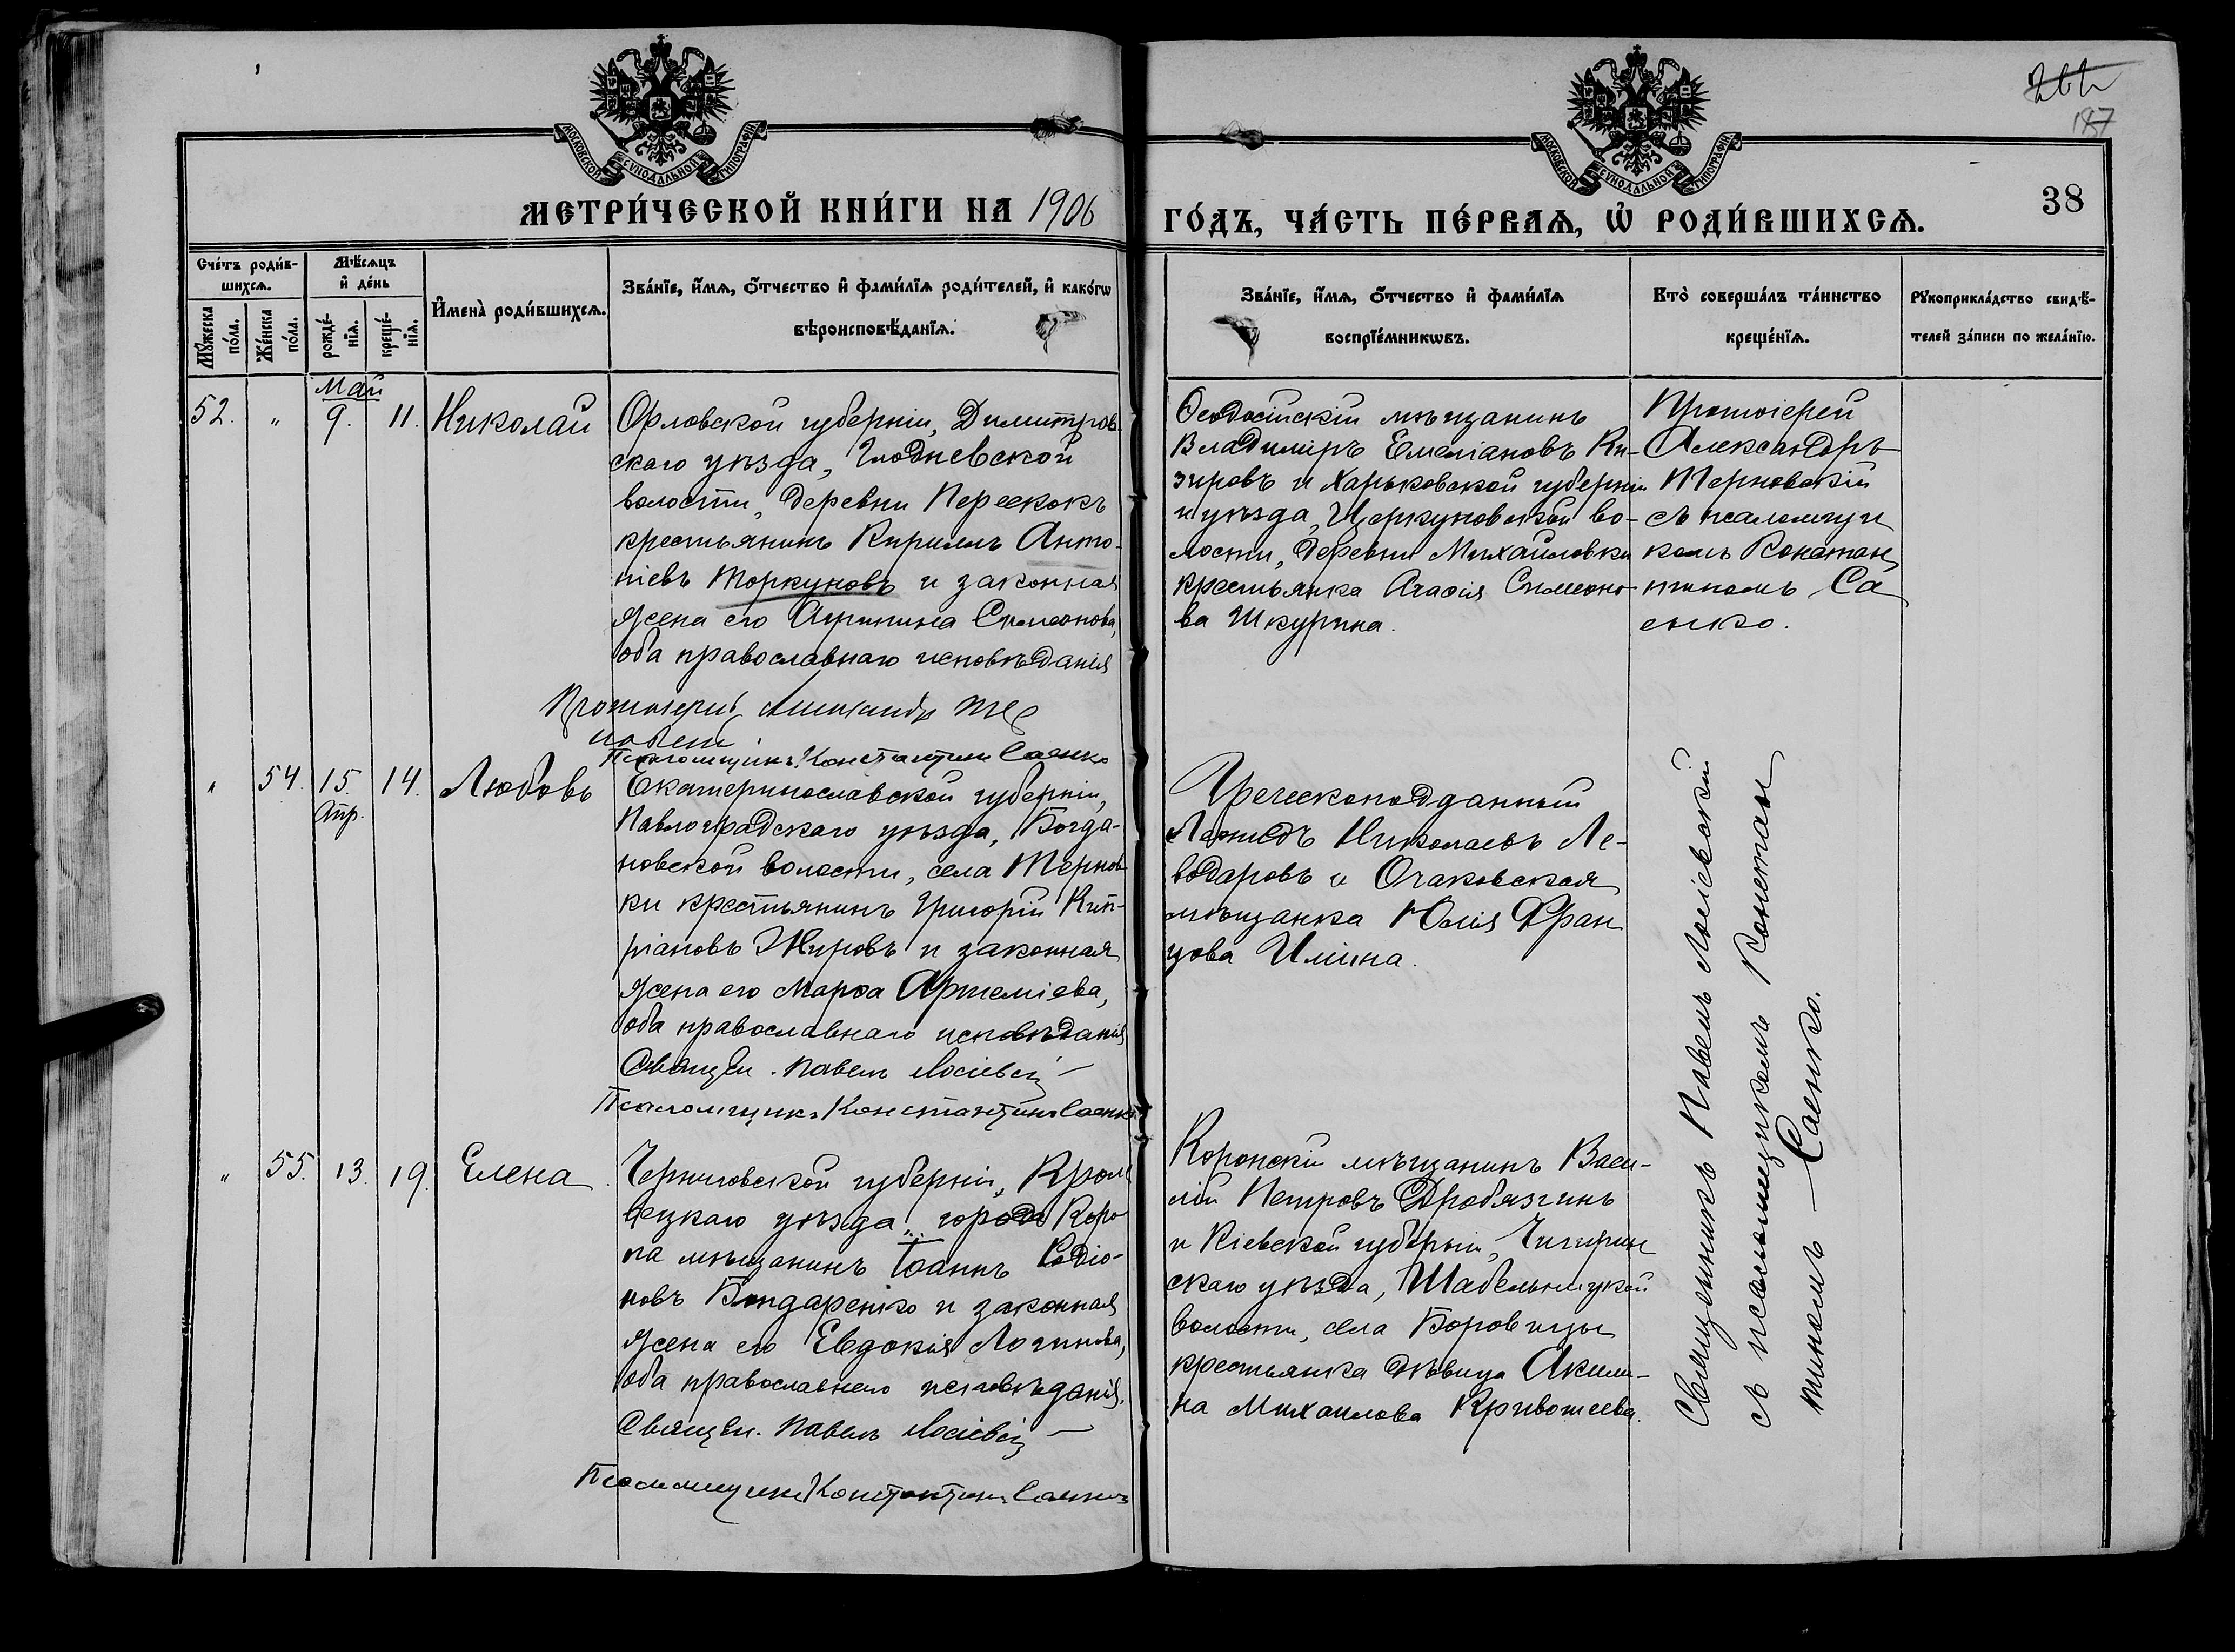 Метри́ческой кни́ги на 1906
го́дъ, ча́сть пе́рвая, ѡ҆ роди́вшихся.
38
187
Московской Сѵнодальной Типографіи
Московской Сѵнодальной Типографіи
Сче́тъ роди́в-
шихся.
Мꙋ́жеска по́ла.
Же́нска по́ла.
Мѣ́сяцъ и҆ де́нь
рожде́-нія.
креще́-нія.
И҆мена̀ роди́вшихся.
Зва́ніе, и҆́мя, о҆́тчество и҆ фами́лія роди́телей, и҆ како́гѡ
вѣроисповѣ́данія.
Зва́ніе, и҆́мя, о҆́тчество и҆ фами́лія
воспріе́мникѡвъ.
Кто̀ соверша́лъ та́инство
креще́нія.
Рꙋкоприкла́дство свидѣ́-
телей за́писи по жела́нію.
Май
52. " 9. 11. Николай
Орловской губерніи, Димитров-
скаго уѣзда, Глодневской
волости, деревни Перескокъ
крестьянинъ Кириллъ Анто-
ніевъ Торкуновъ и законная
жена его Агрипина Симеонова,
оба православнаго исповѣданія
Протоіерей Александръ Тер
новскій
Псаломщикъ Константинъ Саенко
Ѳеодосійскій мѣщанинъ
Владиміръ Емеліановъ Ки-
зировъ и Харьковской губерніи
и уѣзда, Церкуновской во-
лости, деревни Михайловки
крестьянка Агаѳія Симеоно-
ва Шкурина.
Протоіерей
Александръ
Терновскій
съ псаломщи
комъ Констан
тиномъ Са
енко.
" 54. 15. 14. Любовь
Апр.
Екатеринославской губерніи,
Павлоградскаго уѣзда, Богда-
новской волости, села Тернов-
ки крестьянинъ Григорій Кип-
ріановъ Жировъ и законная
жена его Марѳа Артеміева,
оба православнаго исповѣданія
Священ. Павелъ Лосіевскій
Псаломщикъ Константинъ Саенко
Греческоподданный
Леонидъ Николаевъ Ле-
водаровъ и Очаковская
мѣщанка Юлія Фран
цова Иліина.
" 55. 13. 19. Елена
Черниговской губерніи, Кроле
вецкаго уѣзда, города Коро
па мѣщанинъ Іоаннъ Родіо-
новъ Бондаренко и законная
жена его Евдокія Логинова,
оба православнаго исповѣданія.
Священ. Павелъ Лосіевскій
Псаломщикъ Константинъ Саенко
Коропскій мѣщанинъ Васи-
лій Петровъ Дробязгинъ
и Кіевской губерніи, Чигирин
скаго уѣзда, Шабельницкой
волости, села Боровицы
крестьянка дѣвица Акили-
на Михаилова Кривошеева.
Священникъ Павелъ Лосіевскій
съ псаломщикомъ Констан
тиномъ Саенко.